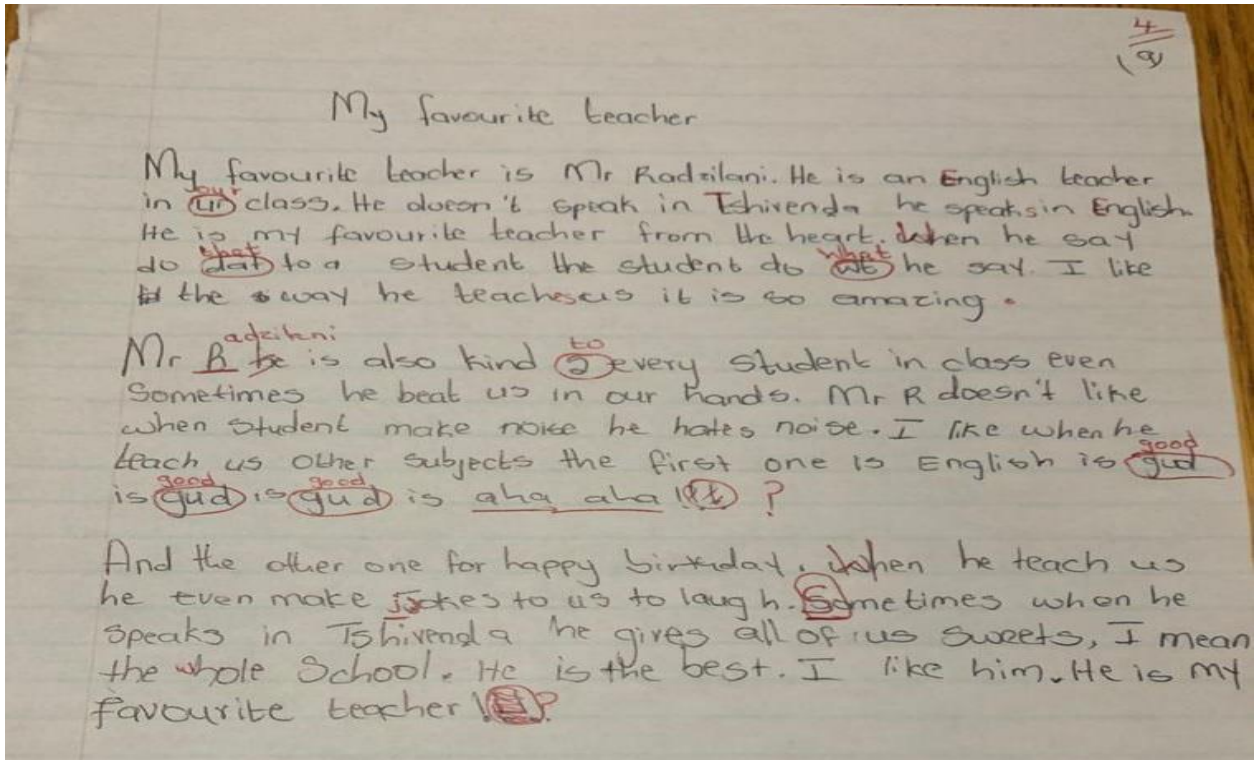 4
(9)
My favourite teacher
My favourite teacher is Mr Radzilani. He is an English teacher
your
in un class. He doesn't speak in Tshivenda he speaks in English.
He is my favourite teacher from the heart. When he say
that what
do dat to a student the student do wt he say. I like
the way he teaches us it is so amazing.
adzilani to
Mr R he is also kind 2 every student in class even
Sometimes he beat us in our hands. Mr R doesn't like
when student make noise he hates noise. I like when he
teach us other subjects the first one is English is gud
good
good good
is gud is gud is aha aha ! ?
And the other one for happy birthday. When he teach us
he even make jokes to us to laugh. Sometimes when he
speaks in Tshivenda he gives all of us sweets, I mean
the whole School. He is the best. I like him. He is my
favourite teacher ! ?